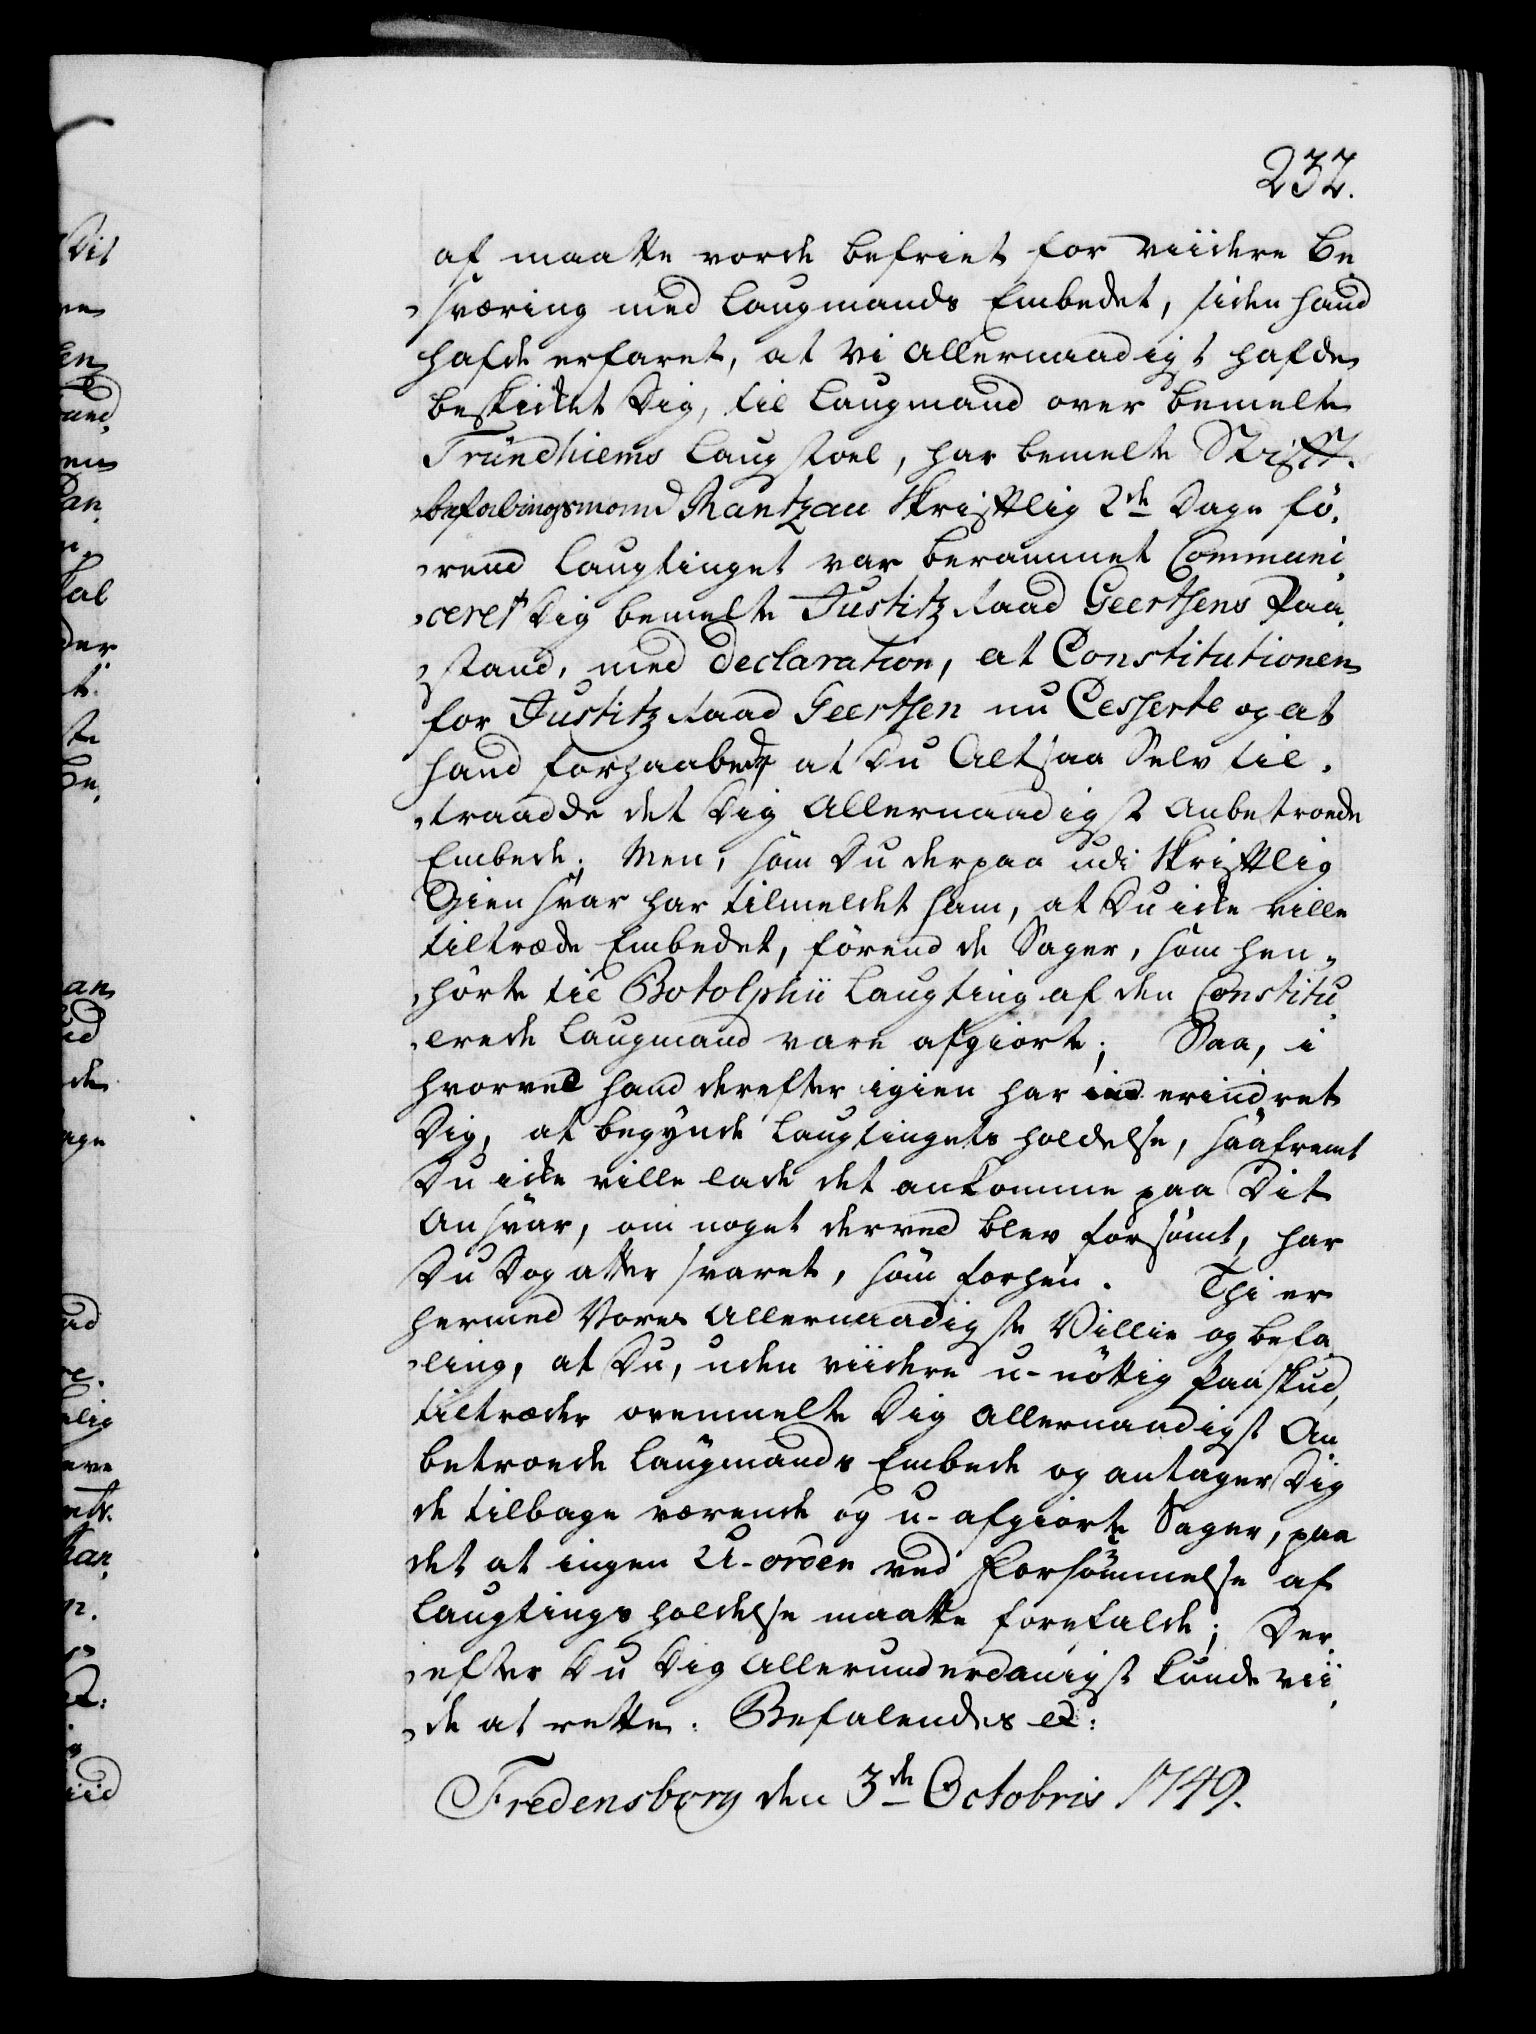 232.
af maatte vorde befriet for viidere be
sværing med Laugmands Embedet, siden hand
hafde erfaret, at Vi Allernaadigst hafde
beskicket Dig, til Laugmand over bemelte
Trundhiems Laugstoel, har bemelte Stifft.
befalingsmand Rantzau Skrifftlig 2de Dage fø,
rend Laugtinget var berammet Communi,
ceret Dig bemelte Justitz Raad Geertsens Paa,
stand, med declaration, at Constitutionen
for Justitz Raad Geertsen nu Cesserte og at
hand forhaabede at Du Altsaa Selv til,
traadde det Dig Allernaadigst Anbetroede
Embede; Men, som Du derpaa udi Skrifftlig
Giensvar har tilmeldet ham, at Du icke ville
tiltræde Embedet, førend de Sager, som hen,
hørte til Botolphii Laugting af den Constitu,
erede Laugmand vare afgiorte; Saa, i
hvorvel hand derefter igien har ind erindret
Dig, at begynde Laugtingets holdelse, saafremt
Du icke ville lade det ankomme paa Dit
Ansvar, om noget derved blev forsømt, har
Du Dog atter svaret, som forhen. Thi er
hermed Vores Allernaadigste Villie og befa,
ling, at Du, uden viidere u-nøttig Paaskud,
tiltræder ovenmelte Dig Allernaadigst An,
betroede Laugmands Embede og antager Dig
de tilbage værende og u-afgiorte Sager, paa
det at ingen U-orden ved Forsømmelse af
Laugtings holdelse maatte forefalde; Der,
efter Du Dig Allerunderdanigst kunde vii,
de at rette. Befalendes etc:
Fredensborg den 3de Octobris 1749.